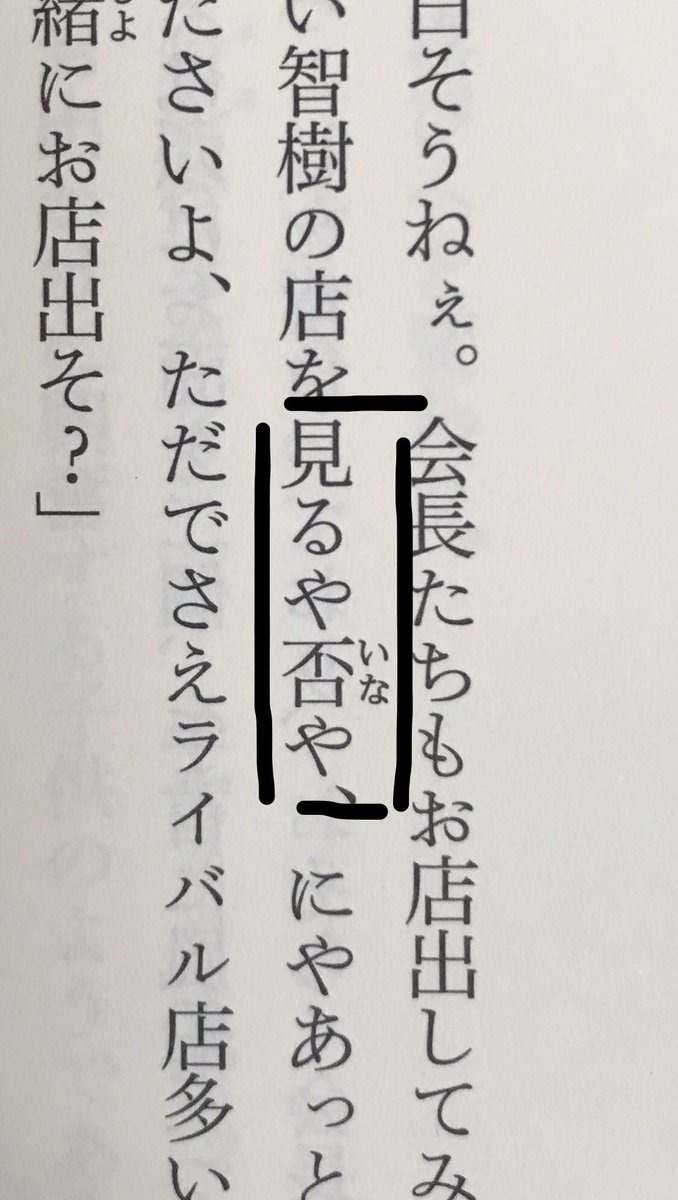 そうねぇ。会長たちもお店出してみ
い智樹の店を見るや否や、にやあっと
ださいよ、ただでさえライバル店多い
緒にお店出そ？」